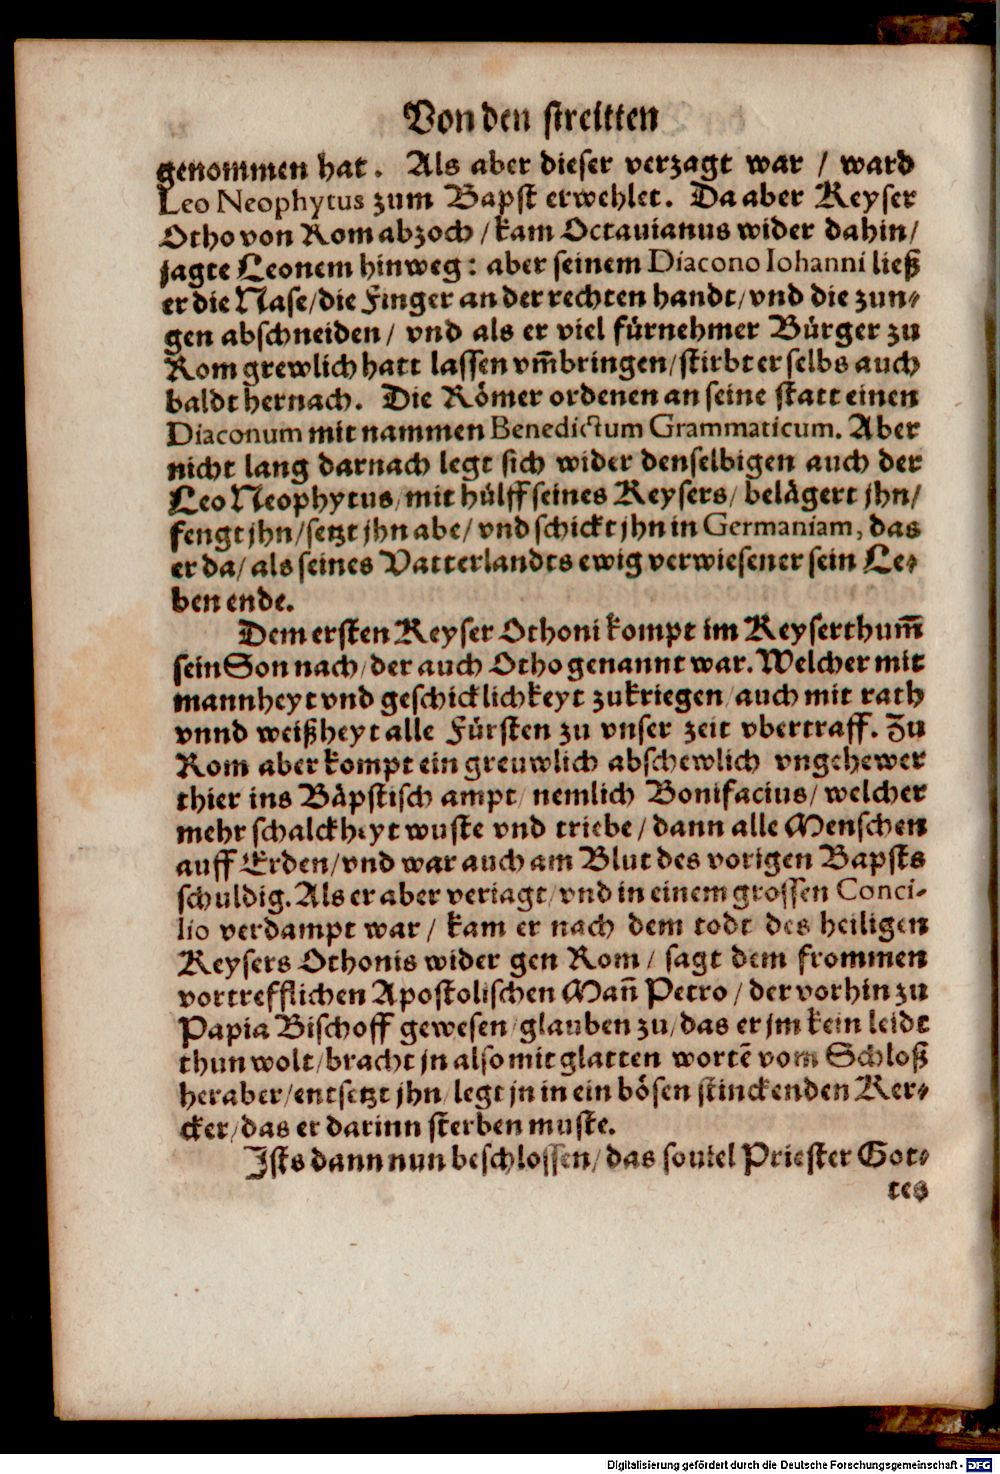 Von den streitten
genommen hat. Als aber dieser verzagt war / ward
Leo Neophytus zum Bapst erwehlet. Da aber Keyser
Otho von Rom abzoch / kam Octauianus wider dahin /
jagte Leonem hinweg: aber seinem Diacono Iohanni ließ
er die Nase / die Finger an der rechten handt / vnd die zun-
gen abschneiden / vnd als er viel fürnehmer Bürger zu
Rom grewlich hatt lassen vm̃bringen / stirbt er selbs auch
baldt hernach. Die Römer ordenen an seine statt einen
Diaconum mit nammen Benedictum Grammaticum. Aber
nicht lang darnach legt sich wider denselbigen auch der
Leo Neophytus / mit hülff seines Keysers / belägert jhn /
fengt jhn / setzt jhn abe / vnd schickt jhn in Germaniam, das
er da / als seines Vatterlandts ewig verwiesener sein Le-
ben ende.
Dem ersten Keyser Othoni kompt im Keyserthum̃
sein Son nach / der auch Otho genannt war. Welcher mit
mannheyt vnd geschicklichkeyt zukriegen / auch mit rath
vnnd weißheyt alle Fürsten zu vnser zeit vbertraff. Zu
Rom aber kompt ein greuwlich abschewlich vngehewer
thier ins Bäpstisch ampt / nemlich Bonifacius / welcher
mehr schalckheyt wuste vnd triebe / dann alle Menschen
auff Erden / vnd war auch am Blut des vorigen Bapsts
schuldig. Als er aber veriagt / vnd in einem grossen Conci-
lio verdampt war / kam er nach dem todt des heiligen
Keysers Othonis wider gen Rom / sagt dem frommen
vortrefflichen Apostolischen Mañ Petro / der vorhin zu
Papia Bischoff gewesen / glauben zu / das er jm kein leidt
thun wolt / bracht jn also mit glatten wortẽ vom Schloß
heraber / entsetzt jhn / legt jn in ein bösen stinckenden Ker-
cker / das er darinn sterben muste.
Ists dann nun beschlossen / das souiel Priester Got-
tes
Digitalisierung gefördert durch die Deutsche Forschungsgemeinschaft - DFG